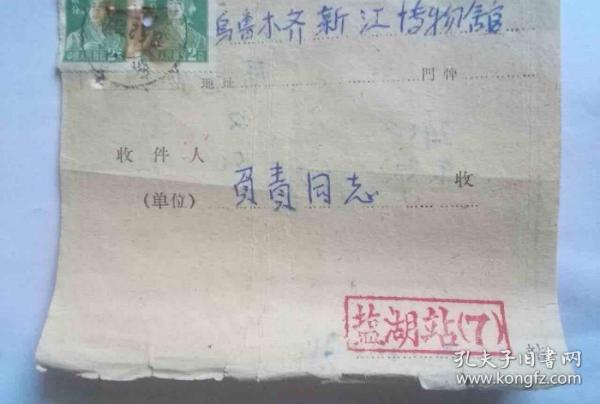 乌鲁木齐新江博物舘
地址 門牌
收件人
(单位) 負責同志 收
盐湖站(7)
孔夫子旧书网
www.kongfz.com